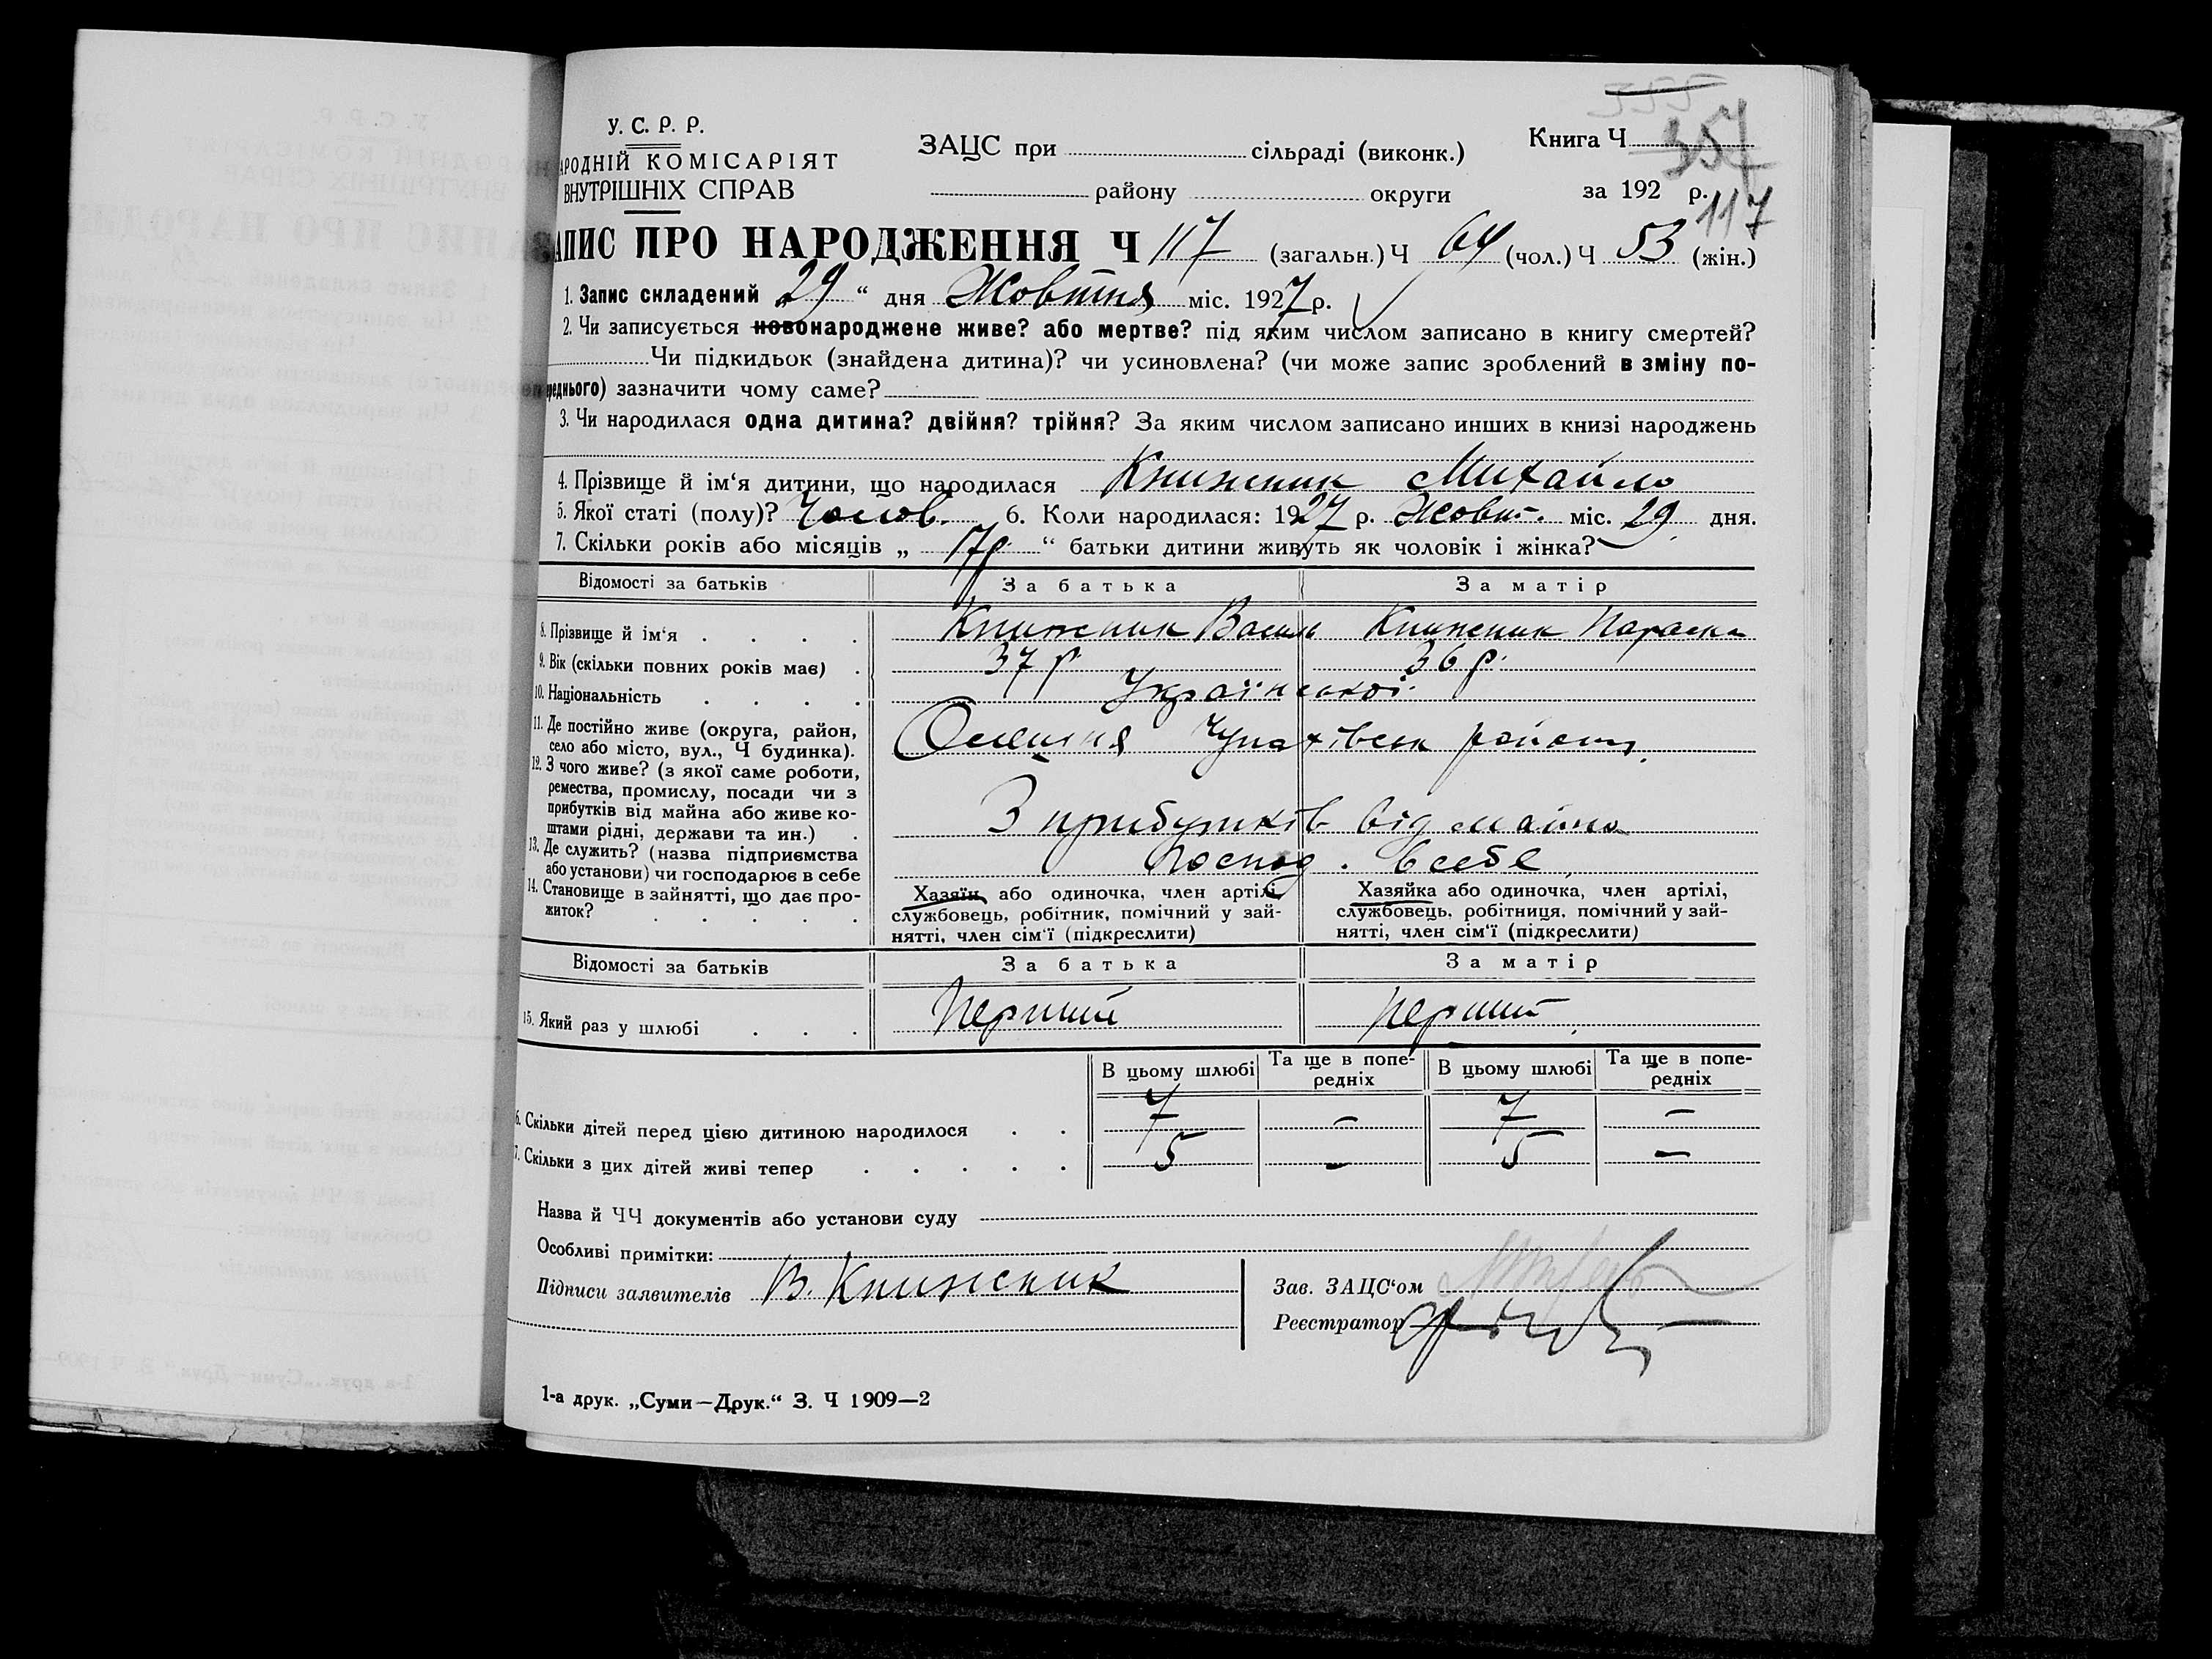 555
357
117
У. С. Р. Р.
АРОДНІЙ КОМІСАРІЯТ
ВНУТРІШНІХ СПРАВ
ЗАЦС при сільраді (виконк.)
району округи
Книга Ч
за 192 р.
АПИС ПРО НАРОДЖЕННЯ Ч 117 (загальн.) Ч 64 (чол.) Ч 53 (жін.)
1. Запис складений „29“ дня Жовтня міс. 1927 р.
2. Чи записується новонароджене живе? або мертве? під яким числом записано в книгу смертей?
Чи підкидьок (знайдена дитина)? чи усиновлена? (чи може запис зроблений в зміну по-
реднього) зазначити чому саме?
3. Чи народилася одна дитина? двійня? трійня? За яким числом записано инших в книзі народжень
4. Прізвище й ім‘я дитини, що народилася Книжник Михайло
5. Якої статі (полу)? Чолов. 6. Коли народилася: 1927 р. Жовт. міс. 29 дня.
7. Скільки років або місяців „ 17р. “ батьки дитини живуть як чоловік і жінка?
Відомості за батьків За батька За матір
8. Прізвище й ім‘я . . . . Книжник Василь Книжник Параска
9. Вік (скільки повних років має) . 37 р. 36 р.
10. Національність . . . . Української
11. Де постійно живе (округа, район,
село або місто, вул., Ч будинка). Олешня Чупахівськ району
12. З чого живе? (з якої саме роботи,
ремества, промислу, посади чи з
прибутків від майна або живе ко-
штами рідні, держави та ин.) . З прибутків від майна
13. Де служить? (назва підприємства
або установи) чи господарює в себе Господ. в себе
14. Становище в зайнятті, що дає про-
житок? . . . .
Хазяїн або одиночка, член артілі,
службовець, робітник, помічний у зай-
нятті, член сім‘ї (підкреслити)
Хазяйка або одиночка, член артілі,
службовець, робітниця, помічний у зай-
нятті, член сім‘ї (підкреслити)
Відомості за батьків За батька За матір
15. Який раз у шлюбі . . . Перший Перший
В цьому шлюбі Та ще в попе-
редніх В цьому шлюбі Та ще в попе-
редніх
6. Скільки дітей перед цією дитиною народилося . . 7 — 7 —
7. Скільки з цих дітей живі тепер . . . . . 5 — 5 —
Назва й ЧЧ документів або установи суду
Особливі примітки:
Підписи заявителів В. Книжник
Зав. ЗАЦС‘ом
Реєстратор
1-а друк. „Суми—Друк.“ З. Ч 1909—2